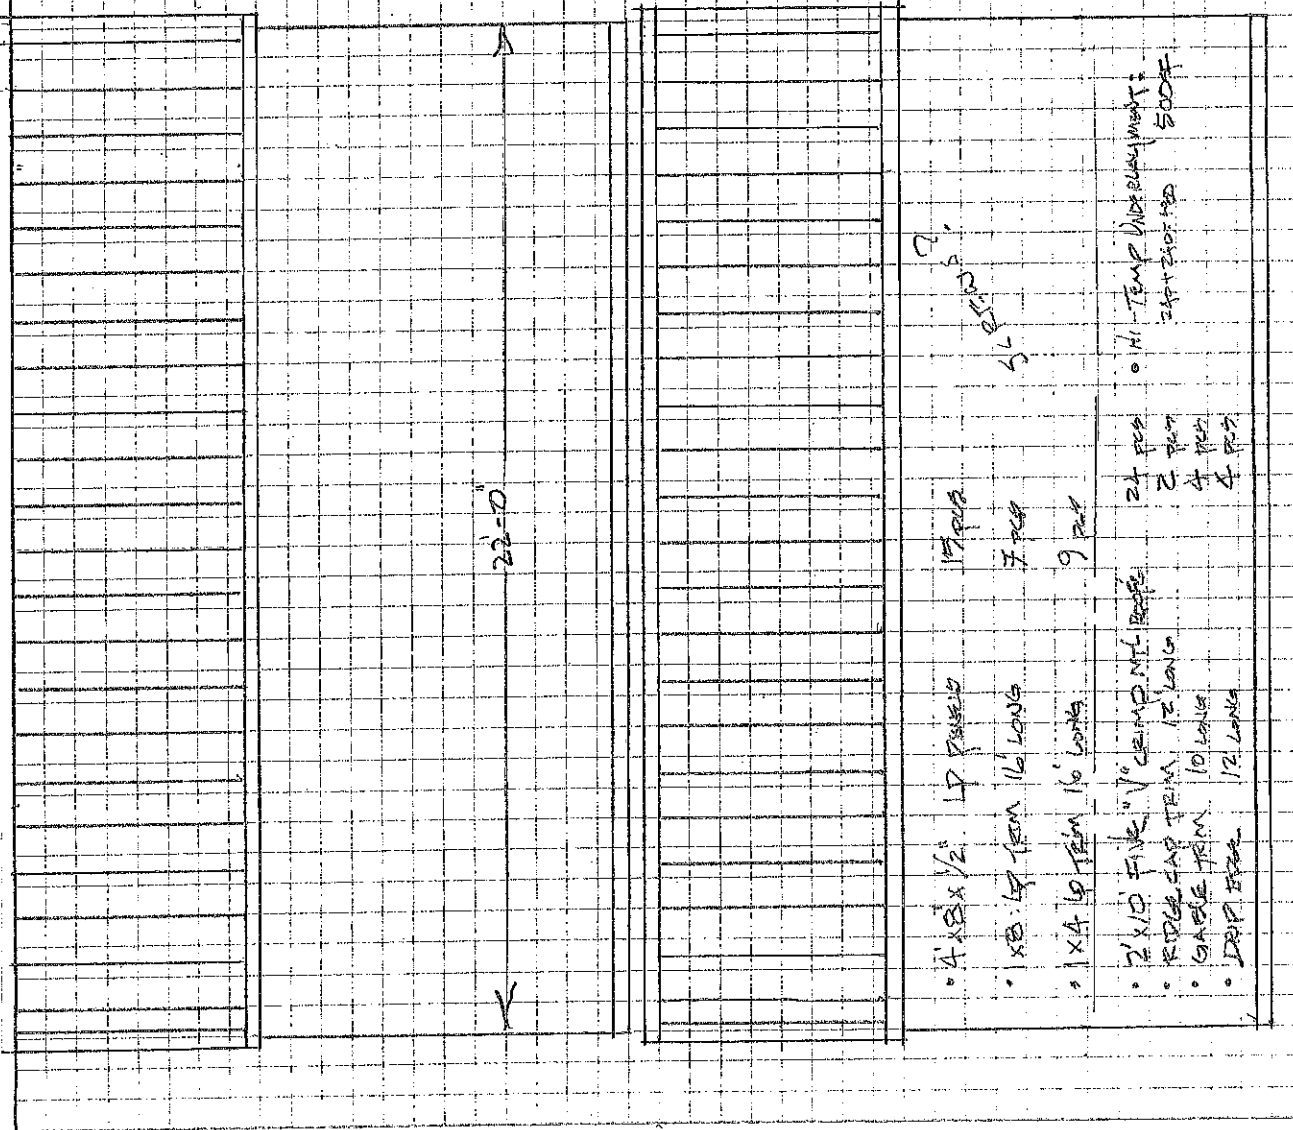 22'-0"
• 4'x8'x1/2" LP PANELS 15 PCS
• 1x8 LP TRIM 16' LONG 7 PCS
• 1x4 LP TRIM 16' LONG 9 PCS
SCREWS?
• 2'x10' FIVE "V" CRIMP MTL ROOF 24 PCS
• RIDGE CAP TRIM 12' LONG 2 PCS
• GABLE TRIM 10' LONG 4 PCS
• DRIP EDGE 12' LONG 4 PCS
• HI-TEMP UNDERLAYMENT:
240+240=480 500 SF